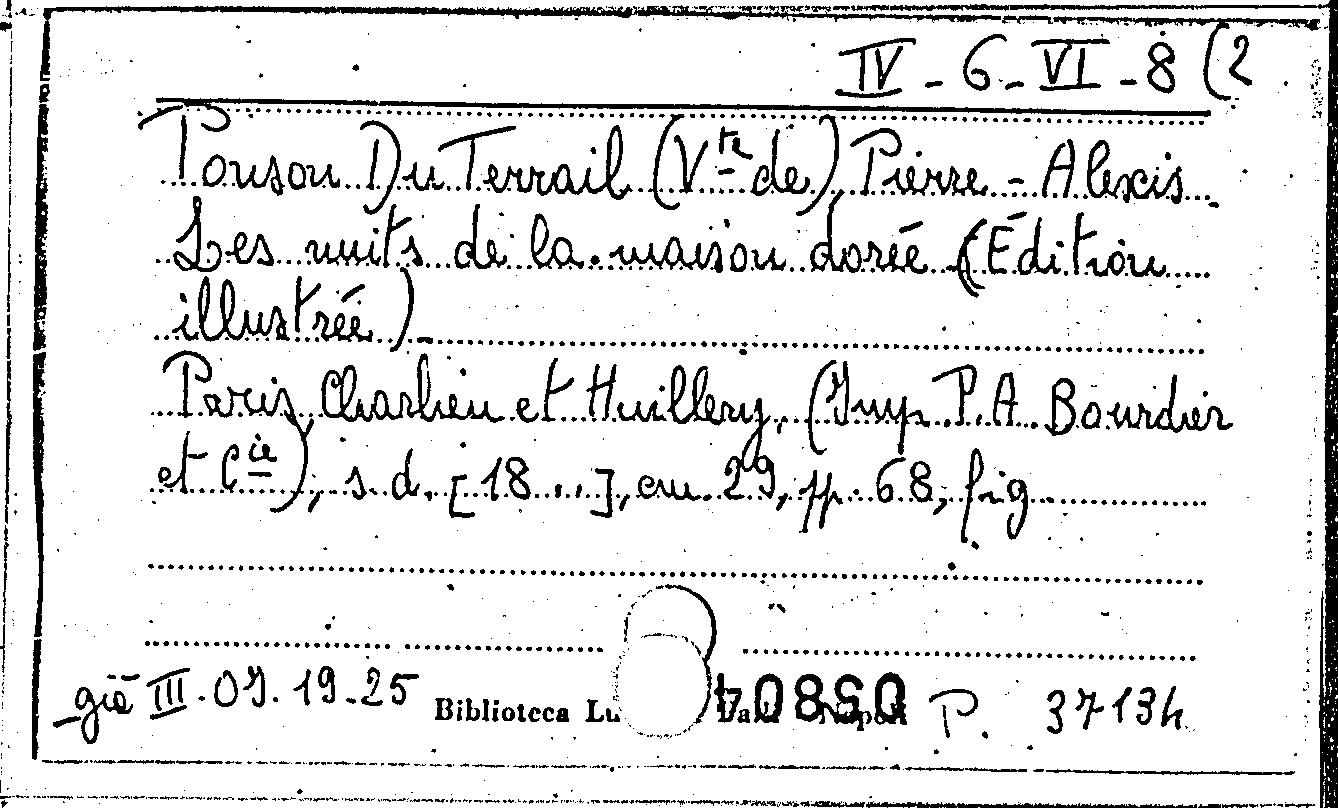 IV - 6 - VI - 8 (2
Ponson Du Terrail (Vte de) Pierre - Alexis
Les nuits de la maison dorée (Édition
illustrée)
Paris, Charlieu et Huillery, (Imp. P. A. Bourdier
et Cie), s. d. [18..], cm. 29, pp. 68, fig
già III. 07. 19-25 Biblioteca Lu P. 37134